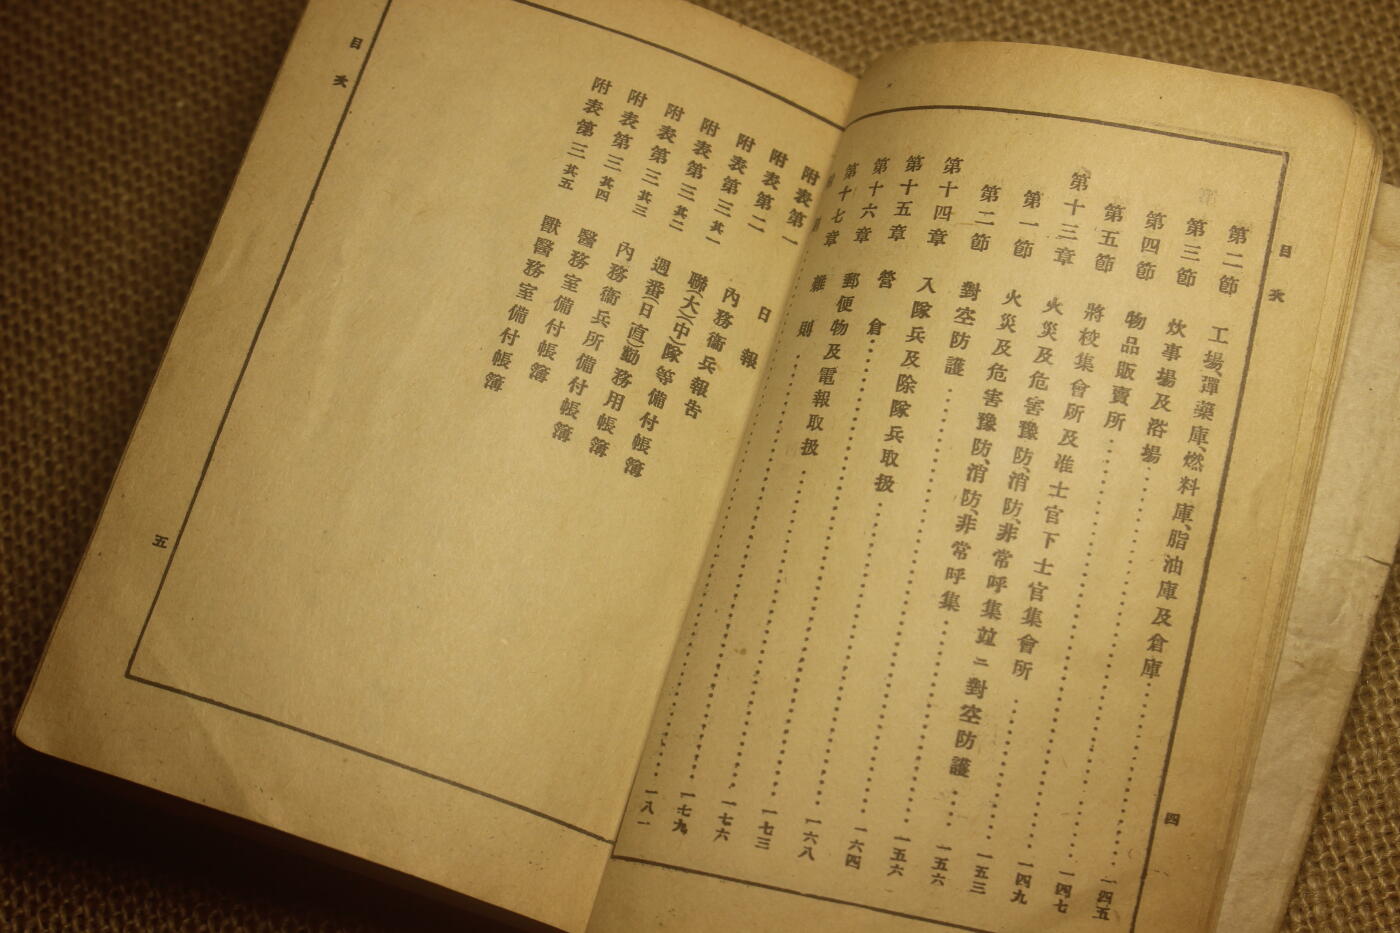 目次
四
第二節 工場、彈藥庫、燃料庫、脂油庫及倉庫……一四五
第三節 炊事場及浴場……一四七
第四節 物品販賣所……一四九
第五節 將校集會所及准士官下士官集會所……一五三
第十三章 火災及危害豫防、消防、非常呼集竝ニ對空防護……一五六
第一節 火災及危害豫防、消防、非常呼集……一五六
第二節 對空防護……一六四
第十四章 入隊兵及除隊兵取扱……一六八
第十五章 營倉……一七三
第十六章 郵便物及電報取扱……一七六
第十七章 雜則……一七九
附則……一八一
附表第一 日報
附表第二 內務衞兵報告
附表第三其一 聯(大)(中)隊等備付帳簿
附表第三其二 週番(日直)勤務用帳簿
附表第三其三 內務衞兵所備付帳簿
附表第三其四 醫務室備付帳簿
附表第三其五 獸醫務室備付帳簿
目次
五